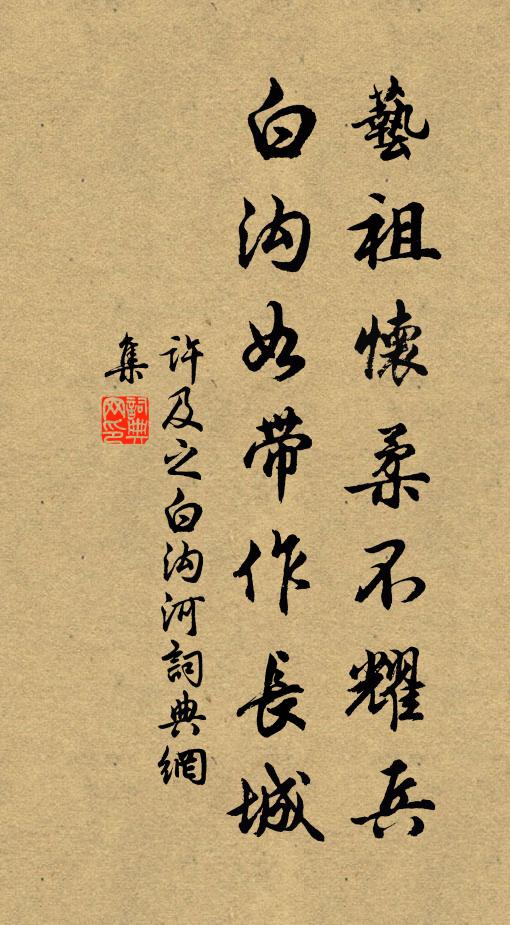 藝祖懷柔不耀兵
白沟如带作長城
許及之白沟河詞典網
集
詞典
网印